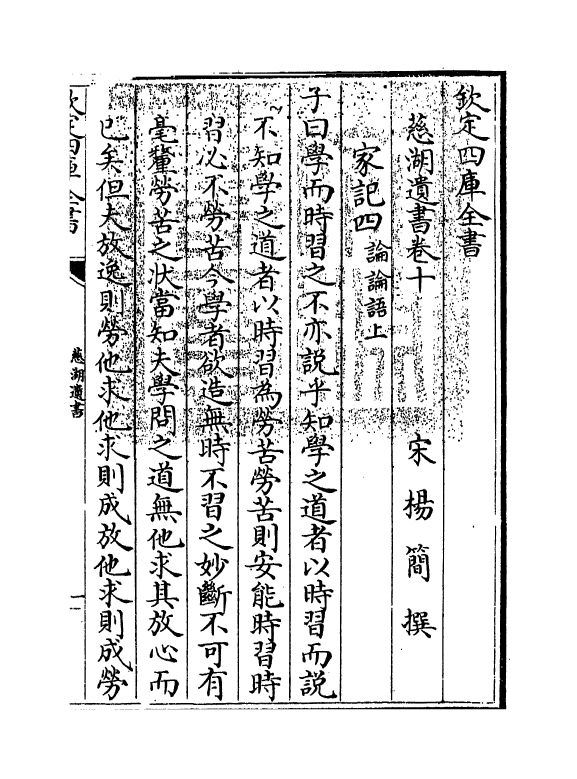 欽定四庫全書
慈湖遺書卷十
宋 楊簡 撰
家記四 論論語上
子曰學而時習之不亦説乎知學之道者以時習而説
不知學之道者以時習為勞苦勞苦則安能時習時
習必不勞苦今學者欲造無時不習之妙斷不可有
毫釐勞苦之狀當知夫學問之道無他求其放心而
已矣但夫放逸則勞他求他求則成放他求則成勞
欽定四庫全書
慈湖遺書
一